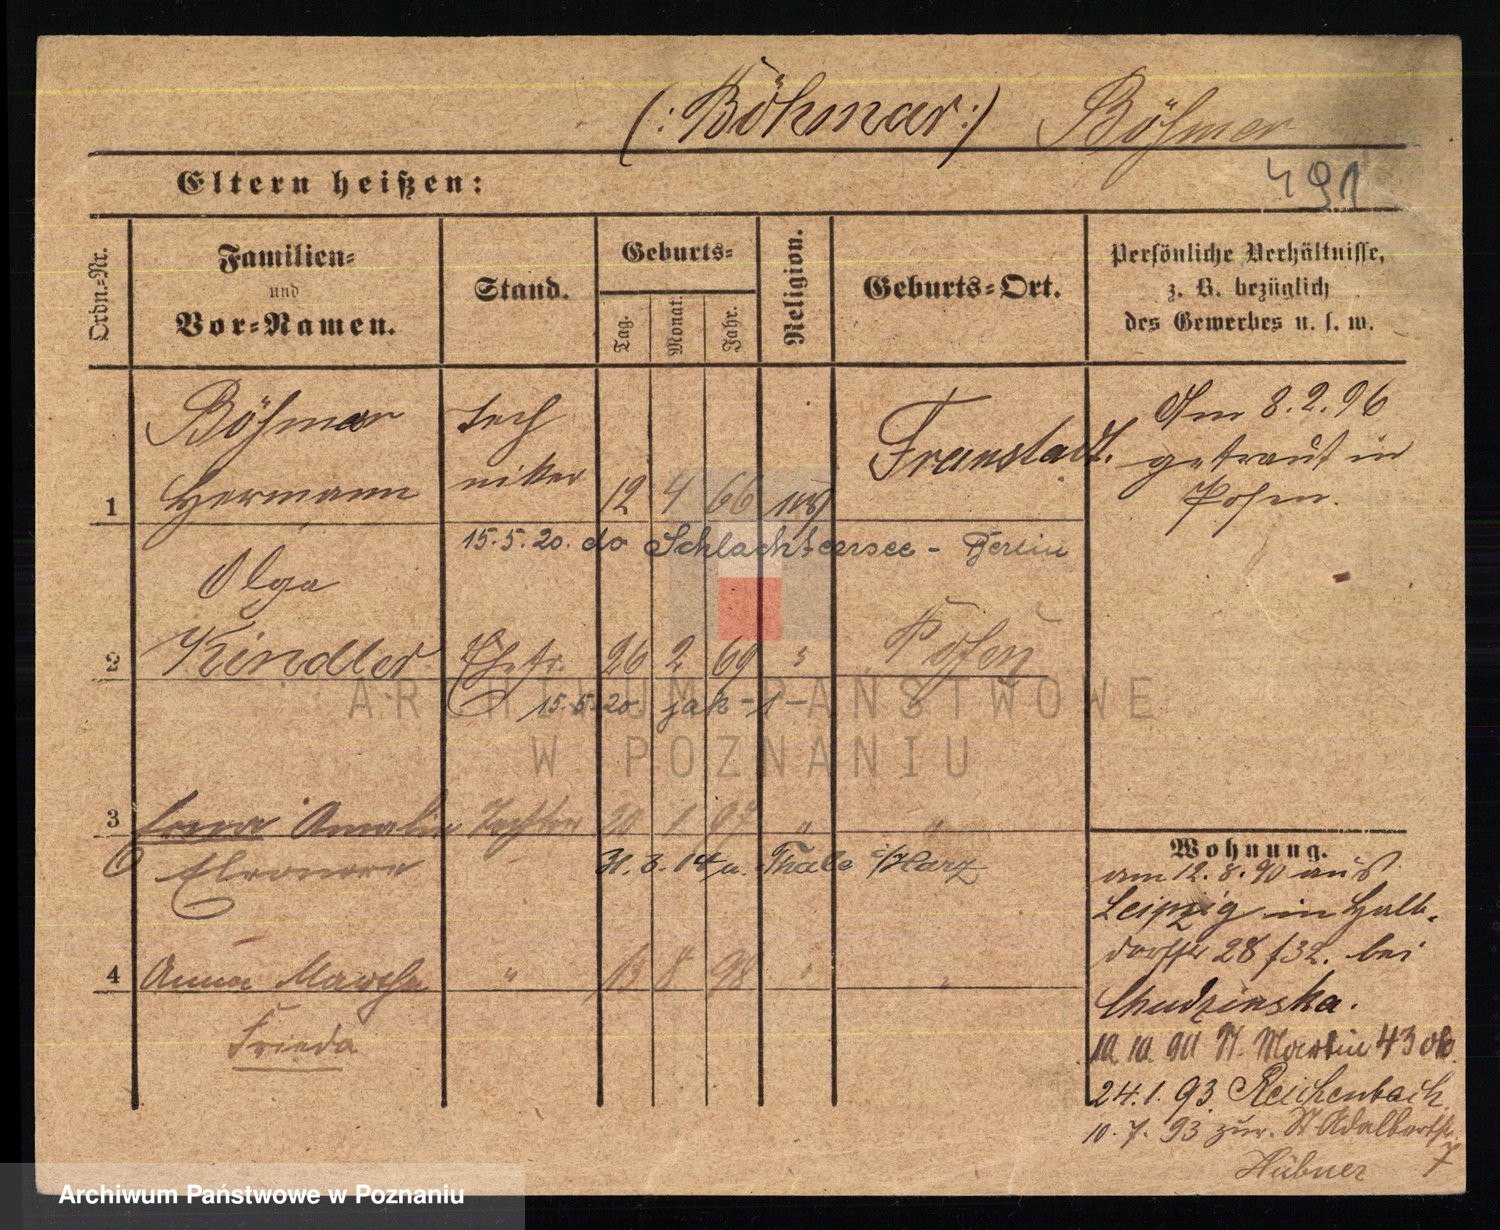 (: Böhmar :) Böhmer
491
Eltern heißen:
Ordn.-Nr.
Familien-
und
Vor-Namen.
Stand.
Geburts-
Tag.
Monat.
Jahr.
Religion.
Geburts-Ort.
Persönliche Verhältnisse,
z. B. bezüglich
des Gewerbes u. s. w.
Böhmer
Hermann
Tech
niker
1
12 4 66
Fraustadt.
Am 8.2.96
getraut in
Posen.
15.5.20. do Schlachtensee - Berlin
Olga
2 Kindler Ehefr. 26 2 69 " Posen
15.5.20 jak -1-
3 Erna Amalie Tochter 20 1 97 " "
Eleonore
31.3.14 n. Thale i/Harz
4 Anna Martha " 13 8 98 " "
Frieda
Wohnung.
am 12.8.90 aus
Leipzig in Halb-
dorffstr 28/32. bei
Chudzinska.
10.10.90 St. Martin 43
24.1.93. Reichenbach
10.7.93 zur. St Adalbertstr.
Hübner 7
ARCHIWUM PAŃSTWOWE
W POZNANIU
Archiwum Państwowe w Poznaniu